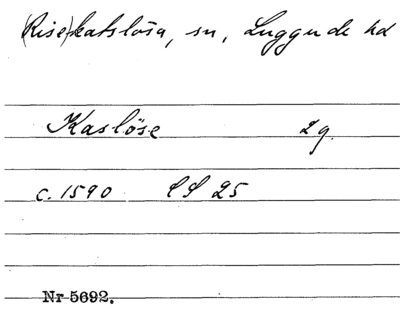 (Rise)katslösa, sn, Luggude hd
Kaslöse 2g.
c. 1590 LS 25
Nr 5692.